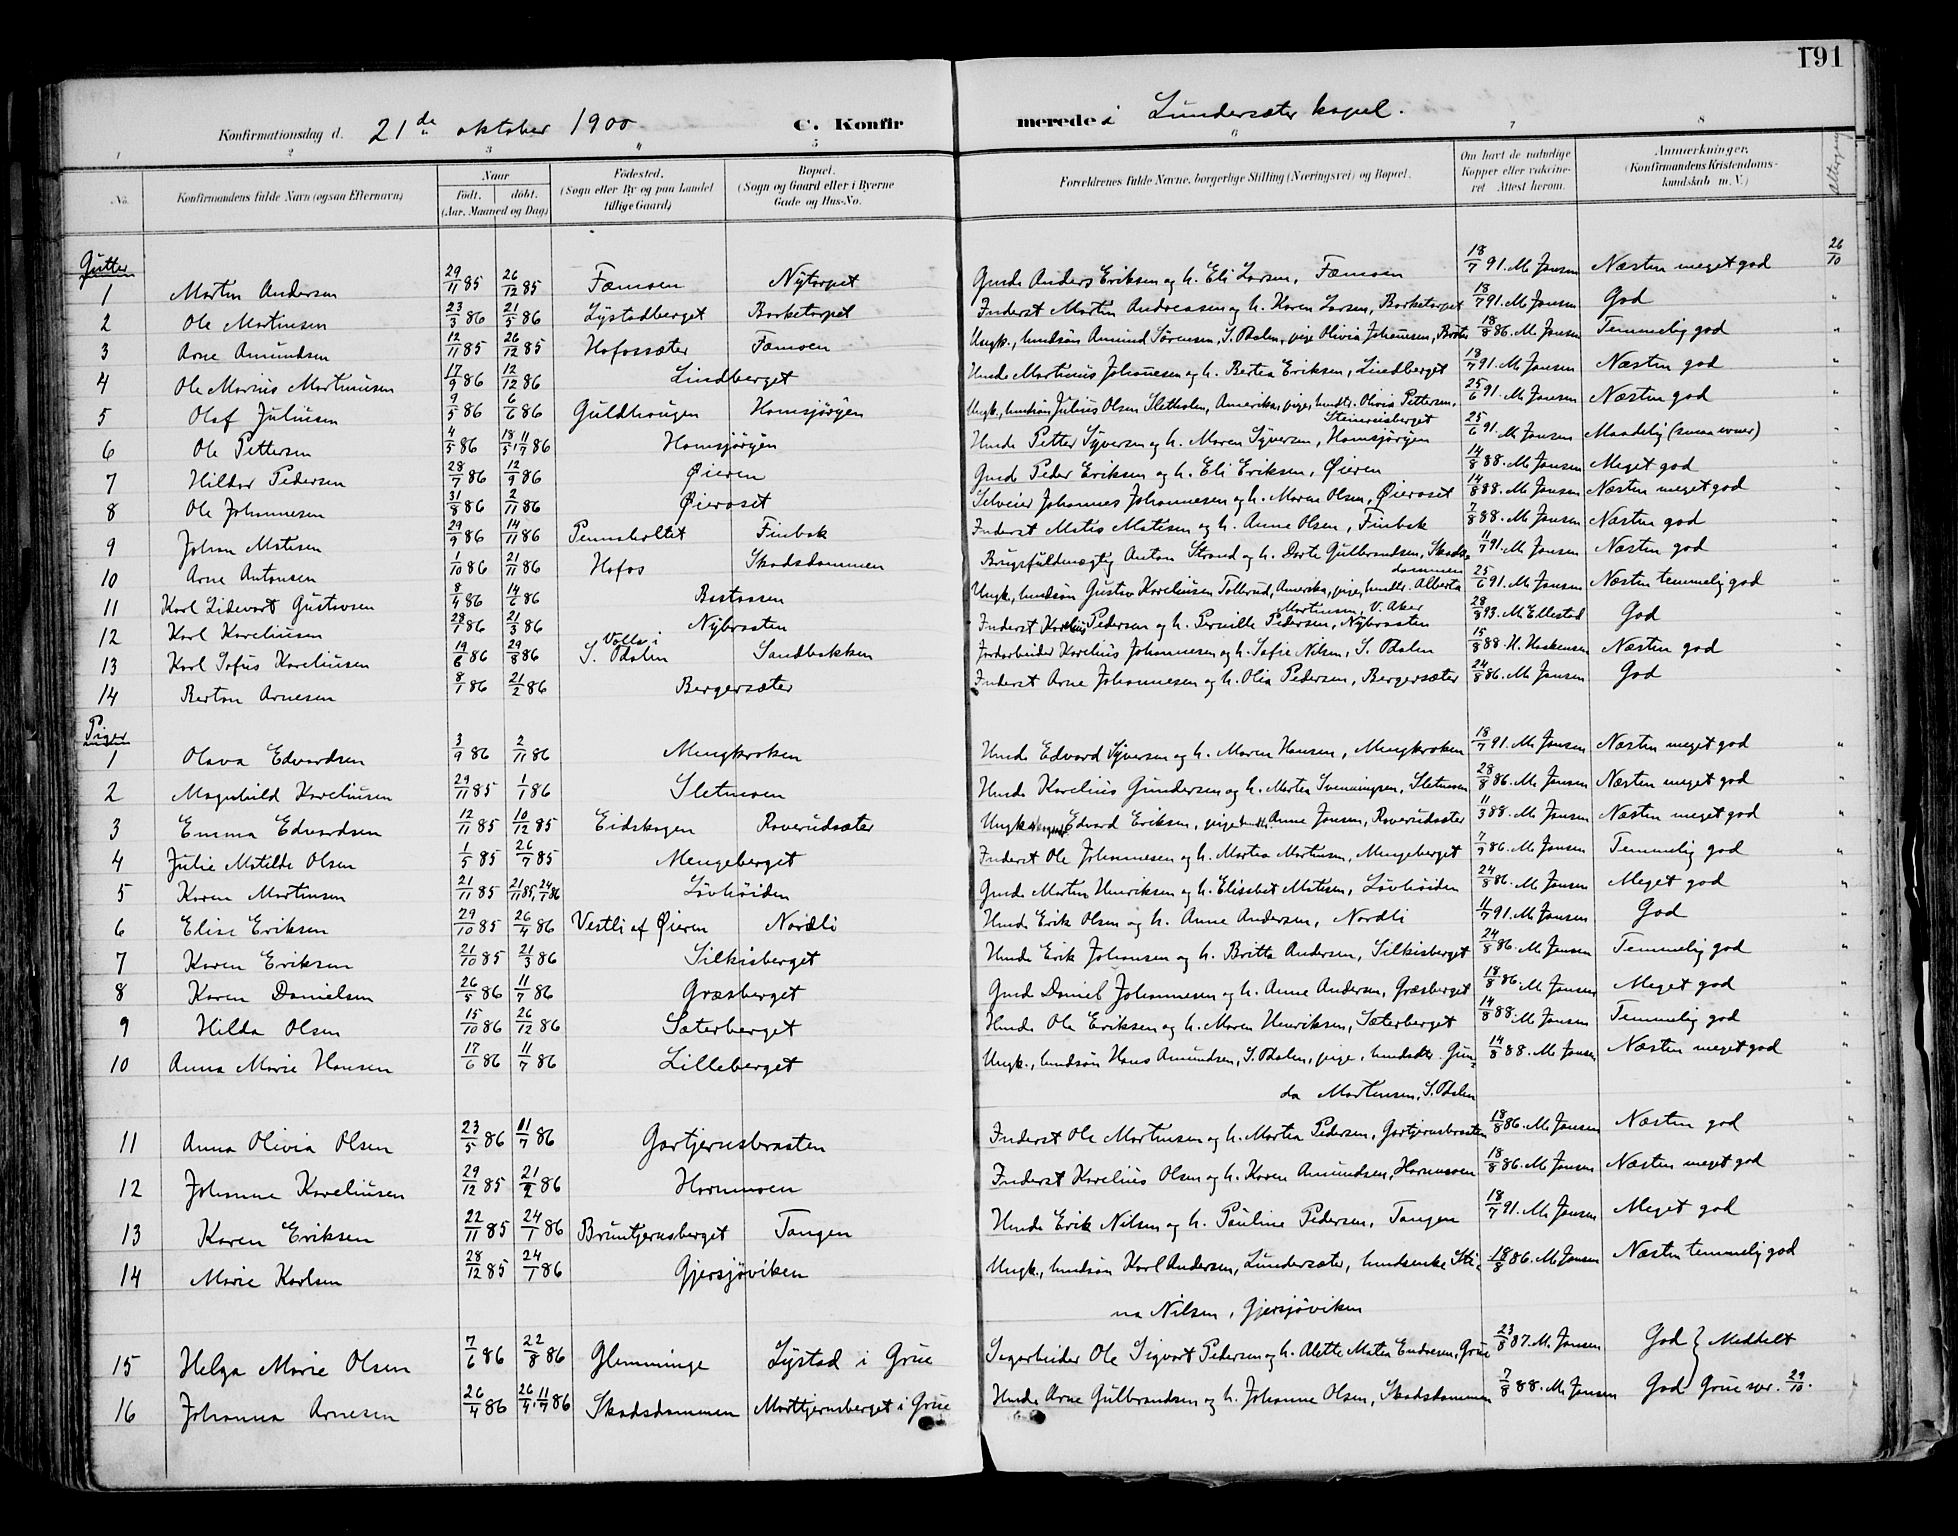 191
Konfirmationsdag d. 21de oktober 1900 C. Konfirmerede i Lundersæter kapel.
1 2 3 4 5 6 7 8
No. Konfirmandens fulde Navn (ogsaa Efternavn) Naar født, døbt. (Aar, Maaned og Dag) Fødested. (Sogn eller By og paa Landet tillige Gaard) Bopæl. (Sogn og Gaard eller i Byerne Gade og Hus-No. Forældrenes fulde Navne, borgerlige Stilling (Næringsvei) og Bopæl. Om havt de naturlige Kopper eller vakcineret Attest herom. Anmærkninger. (Konfirmandens Kristendomskundskab m. V.) Altergang
Gutter 26/10
1 Martin Andersen 29/11 85 26/12 85 Fæmoen Nytorpet Gmd Anders Eriksen og h. Eli Larsen, Fæmoen 18/7 91. M. Jansen Næsten meget god
2 Ole Martinsen 23/3 86 21/5 86 Lystadberget Borketorpet Inderst Martin Andreassen og h. Karen Larsen, Borketorpet 18/7 91. M. Jansen God "
3 Arne Amundsen 12/11 85 26/12 85 Hofossæter Fæmoen Ungk., husmsøn Amund Sørensen, S. Odalen, pige Olivia Johansen, 18/8 86. M. Jansen Temmelig god "
4 Ole Marius Martinusen 17/9 86 12/12 86 Lindberget Husmd Martinus Johannesen og h. Bertea Eriksen, Lindberget 18/7 91. M. Jansen Næsten god "
5 Olaf Juliusen 9/5 86 6/6 86 Guldhaugen Homsjørgen Ungk., husmsøn Julius Olsen Sletholen, Amerika, pige, husmdtr. Olivia Pettersen, Steinerudsberget 25/6 91. M. Jansen Næsten god "
6 Ole Pettersen 4/5 86 18/5, 11/7 86 Homsjørgen Husmd Petter Syversen og h. Maren Syversen, Homsjørgen 25/6 91. M. Jansen Maadelig (smaa evner) "
7 Hildor Pedersen 28/7 86 12/9 86 Øieren Gmd Peder Eriksen og h. Eli Eriksen, Øieren 14/8 88. M. Jansen Meget god "
8 Ole Johannesen 31/8 86 2/11 86 Øieroset Selveier Johannes Johannesen og h. Maren Olsen, Øieroset 14/8 88. M. Jansen Næsten meget god "
9 Johan Matisen 29/9 86 14/11 86 Pennaholtet Finbak Inderst Matis Matisen og h. Anne Olsen, Finbak 7/8 88. M. Jansen Næsten god "
10 Arne Antonsen 1/10 86 21/11 86 Hofos Skadsdammen Brugsfuldmægtig Anton Strand og h. Dorte Gulbrandsen, Skadsdammen 11/7 91. M. Jansen Næsten god "
11 Karl Lidevart Gustavsen 8/4 86 14/6 86 Bastaasen Ungk., husmsøn Gustav Karelinsen Tollerud, Amerika, pige, husmdtr. Alberta Martinsen, V. Aker 25/6 91. M. Jansen Næsten temmelig god "
12 Karl Kareliusen 28/1 86 21/3 86 Nybraaten Inderst Karelius Pedersen og h. Pernille Pedersen, Nybraaten 28/8 93. M. Ellestad God "
13 Karl Sofus Kareliusen 19/6 86 29/8 86 Volla i S. Odalen Sandbakken Jordarbeider Karelius Johannesen og h. Sofie Nilsen, S. Odalen 15/8 88. H. Haakensen Næsten god "
14 Berton Arnesen 8/1 86 21/2 86 Bergersæter Inderst Arne Johannesen og h. Olia Pedersen, Bergersæter 24/8 86. M. Jansen God "
Piger
1 Olava Edvardsen 3/9 86 2/11 86 Mengkroken Husmd Edvard Syversen og h. Maren Hansen, Mengkroken 18/7 91. M. Jansen Næsten meget god "
2 Magnhild Kareliusen 29/11 85 1/1 86 Sletmoen Husmd Karelius Gundersen og h. Martea Svenningsen, Sletmoen 28/8 86. M. Jansen Næsten meget god "
3 Emma Edvardsen 12/11 85 10/12 85 Eidskogen Roverudsæter Ungk. Edvard Eriksen, pige Anne Jansen, Roverudsæter 11/3 88. M. Jansen Næsten meget god "
4 Julie Matilde Olsen 1/5 85 26/7 85 Mengeberget Inderst Ole Johannesen og h. Martea Martinsen, Mengeberget 7/9 86. M. Jansen Temmelig god "
5 Karen Martinsen 21/11 85 21/11 85, 24/1 86 Løvhøiden Gmd Martin Henriksen og h. Elisabet Matisen, Løvhøiden 24/8 86. M. Jansen Meget god "
6 Elise Eriksen 29/10 85 26/4 86 Vestli af Øieren Nordli Husmd Erik Olsen og h. Anne Andersen, Nordli 11/7 91. M. Jansen God "
7 Karen Eriksen 21/10 85 21/3 86 Silkisberget Husmd Erik Johansen og h. Britta Andersen, Silkisberget 24/8 86. M. Jansen Temmelig god "
8 Karen Danielsen 26/5 86 11/7 86 Græsberget Gmd Daniel Johannesen og h. Anne Andersen, Græsberget 18/8 86. M. Jansen Meget god "
9 Hilda Olsen 15/10 86 26/12 86 Sæterberget Husmd Ole Eriksen og h. Maren Henriksen, Sæterberget 14/8 88. M. Jansen Temmelig god "
10 Anna Marie Hansen 17/6 86 11/7 86 Lilleberget Ungk., husmsøn Hans Amundsen, S. Odalen, pige, husmdtr. Gun- 14/8 88. M. Jansen Næsten meget god "
da Martinsen, S. Odalen "
11 Anna Olivia Olsen 23/5 86 11/7 86 Gartjernsbraaten Inderst Ole Martinsen og h. Martea Pedersen, Gartjernsbraaten 18/8 86. M. Jansen Næsten god "
12 Johanne Kareliusen 29/12 85 21/2 86 Harnmoen Inderst Karelius Olsen og h. Karen Amundsen, Harnmoen 18/8 86. M. Jansen Næsten meget god "
13 Karen Eriksen 22/11 85 24/1 86 Bruntjernsberget Tangen Husmd Erik Nilsen og h. Pauline Pedersen, Tangen 18/7 91. M. Jansen Meget god "
14 Marie Karlsen 28/12 85 24/1 86 Gjersjøviken Ungk., husmsøn Karl Andersen, Lundersæter, husmenke Sti- 18/8 86. M. Jansen Næsten temmelig god
na Nilsen, Gjersjøviken "
15 Helga Marie Olsen 7/6 86 22/8 86 Glemminge Lystad i Grue Sagarbeider Ole Sigvart Pedersen og h. Alette Matea Endresen, Grue 23/8 87. M. Jansen God } Meddelt "
16 Johanna Arnesen 26/4 86 26/4, 11/7 86 Skadsdammen Morttjernsberget i Grue Husmd Arne Gulbrandsen og h. Johanne Olsen, Skadsdammen 7/8 88. M. Jansen God } Grue 29/10. "